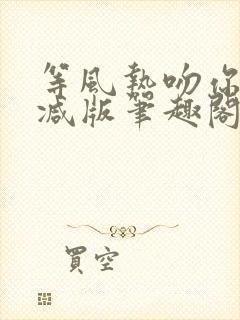 等風熱吻你
减版筆趣閣
買空